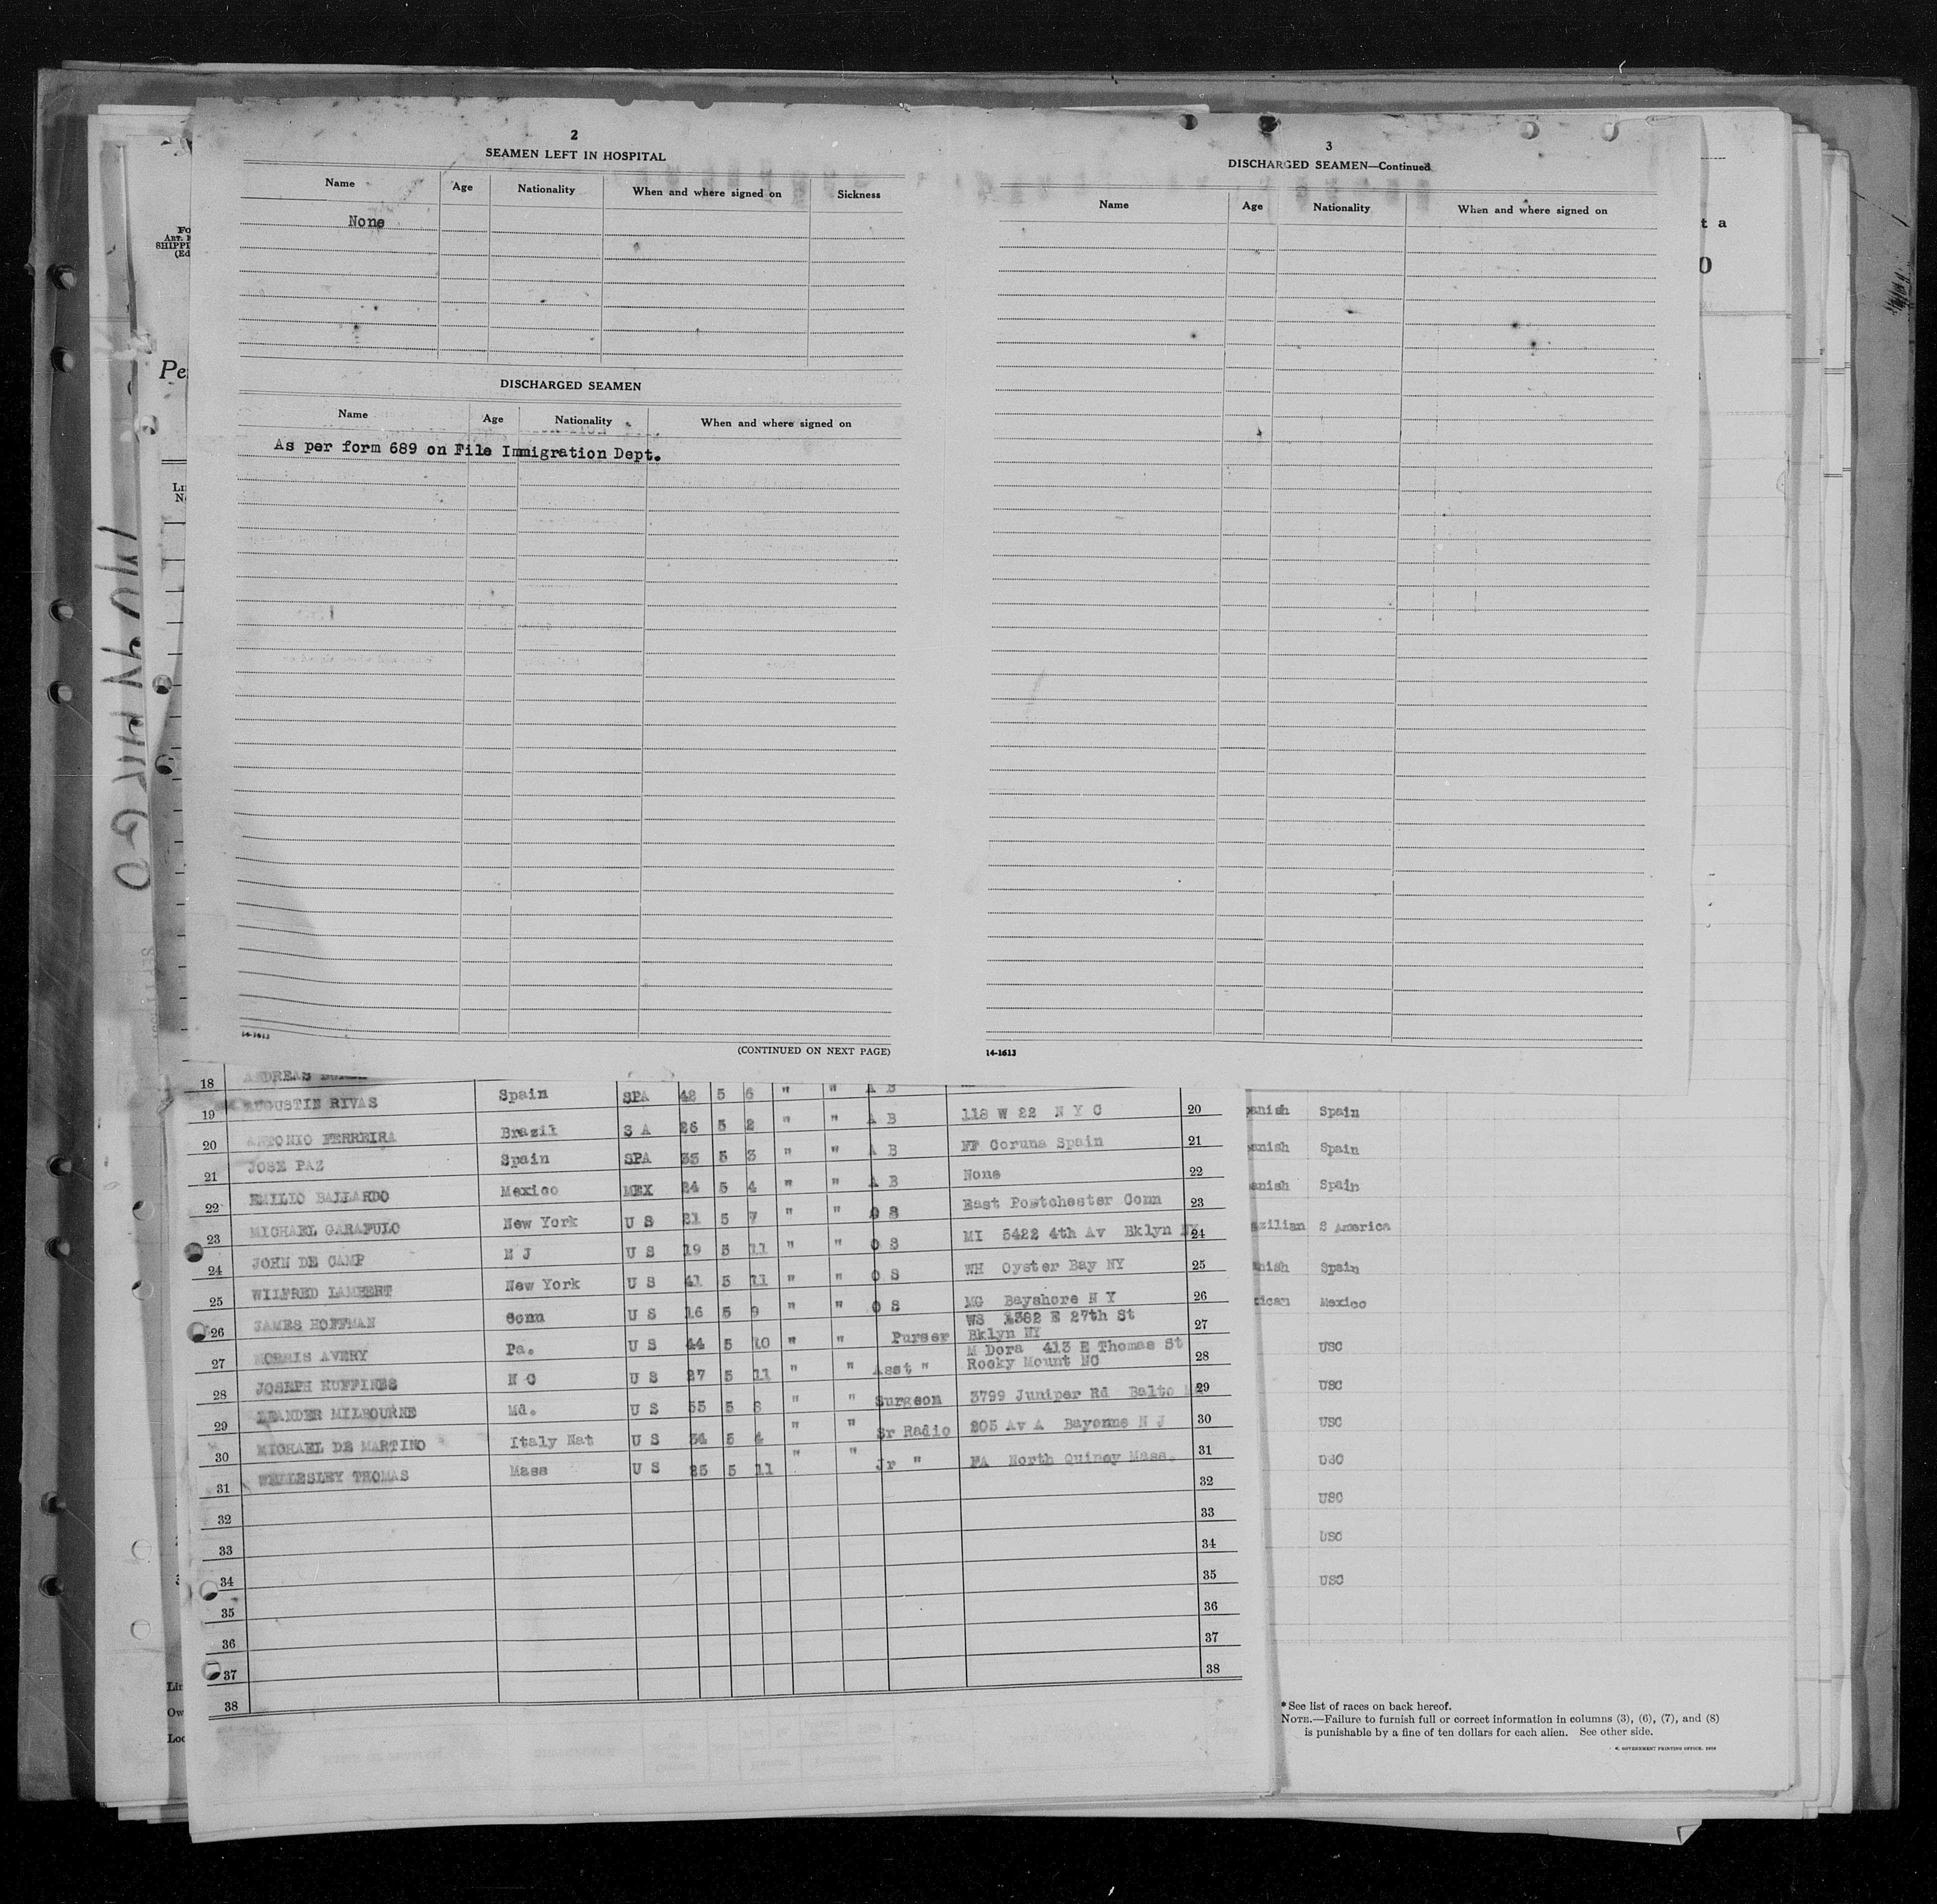 2
SEAMEN LEFT IN HOSPITAL
Name Age Nationality When and where signed on Sickness
None
DISCHARGED SEAMEN
Name Age Nationality When and where signed on
As per form 689 on File Immigration Dept.
14-1613
(CONTINUED ON NEXT PAGE)
3
DISCHARGED SEAMEN—Continued
Name Age Nationality When and where signed on
14-1613
18 ANDREAS
19 AUGUSTIN RIVAS Spain SPA 42 5 6 " " A B
20 ANTONIO FERREIRA Brazil S A 26 5 2 " " A B 118 W 22 N Y C 20
21 JOSE PAZ Spain SPA 35 5 3 " " A B FF Coruna Spain 21
22 EMILIO BALLARDO Mexico MEX 24 5 4 " " A B None 22
23 MICHAEL GARAFULO New York U S 21 5 7 " " O S East Portchester Conn 23
24 JOHN DE CAMP N J U S 19 5 11 " " O S MI 5422 4th Av Bklyn NY 24
25 WILFRED LAMBERT New York U S 41 5 11 " " O S WH Oyster Bay NY 25
26 JAMES HOFFMAN Conn U S 16 5 9 " " O S MG Bayshore N Y 26
27 MORRIS AVERY Pa. U S 44 5 10 " " Purser WS 1382 E 27th St
Bklyn NY 27
28 JOSEPH HUFFINES N C U S 27 5 11 " " Asst " M Dora 413 E Thomas St
Rocky Mount NC 28
29 LEANDER MILBOURNE Md. U S 55 5 8 " " Surgeon 3799 Juniper Rd Balto 29
30 MICHAEL DE MARTINO Italy Nat U S 34 5 4 " " Sr Radio 205 Av A Bayonne N J 30
31 WELLESLEY THOMAS Mass U S 25 5 11 " " Jr " FA North Quincy Mass. 31
32 32
33 33
34 34
35 35
36 36
37 37
38 38
anish Spain
anish Spain
anish Spain
azilian S America
anish Spain
xican Mexico
USC
USC
USC
USC
USC
USC
USC
* See list of races on back hereof.
NOTE.—Failure to furnish full or correct information in columns (3), (6), (7), and (8)
is punishable by a fine of ten dollars for each alien. See other side.